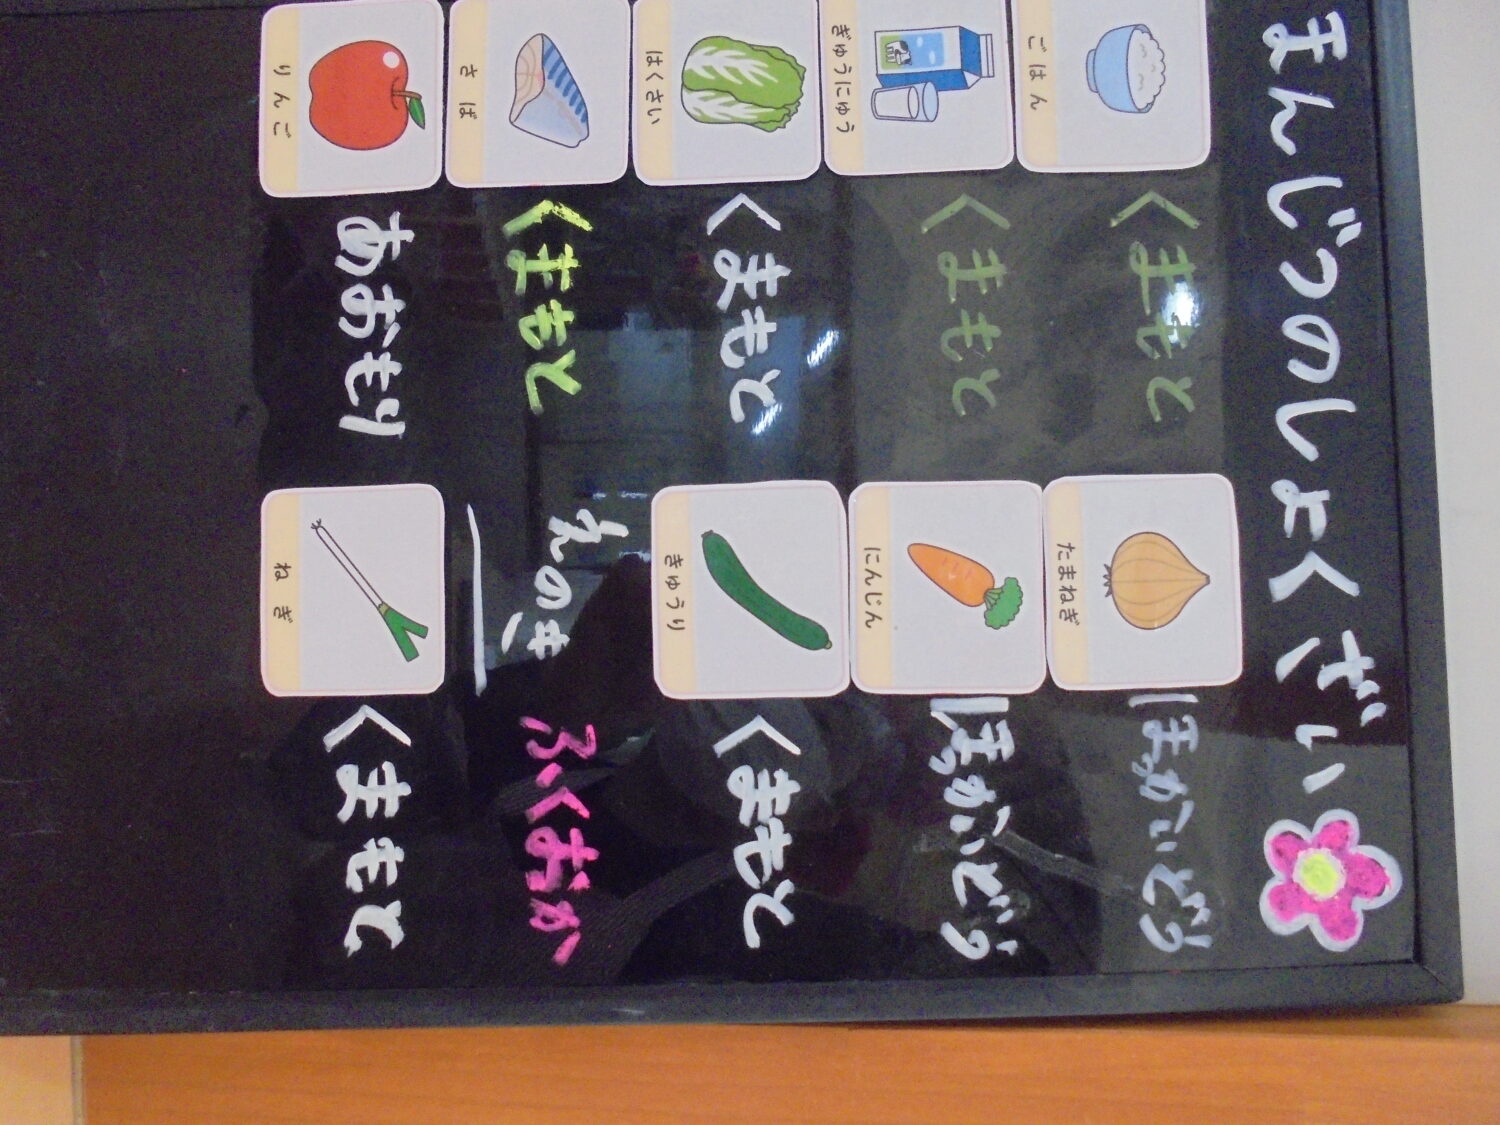 ほんじつのしょくざい
ごはん くまもと たまねぎ ほっかいどう
ぎゅうにゅう くまもと にんじん ほっかいどう
はくさい くまもと きゅうり くまもと
さば くまもと えのき ふくおか
りんご あおもり ねぎ くまもと